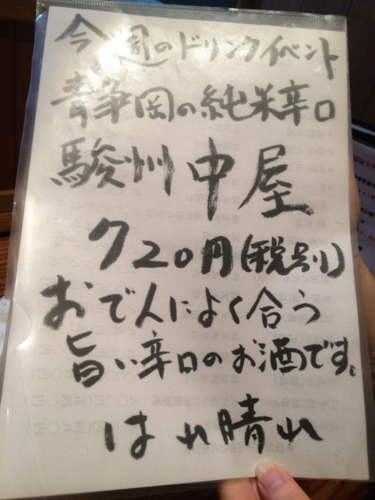 今週のドリンクイベント
静岡の純米辛口
駿州中屋
720円(税別)
おでんによく合う
旨い辛口のお酒です。
はれ晴れ